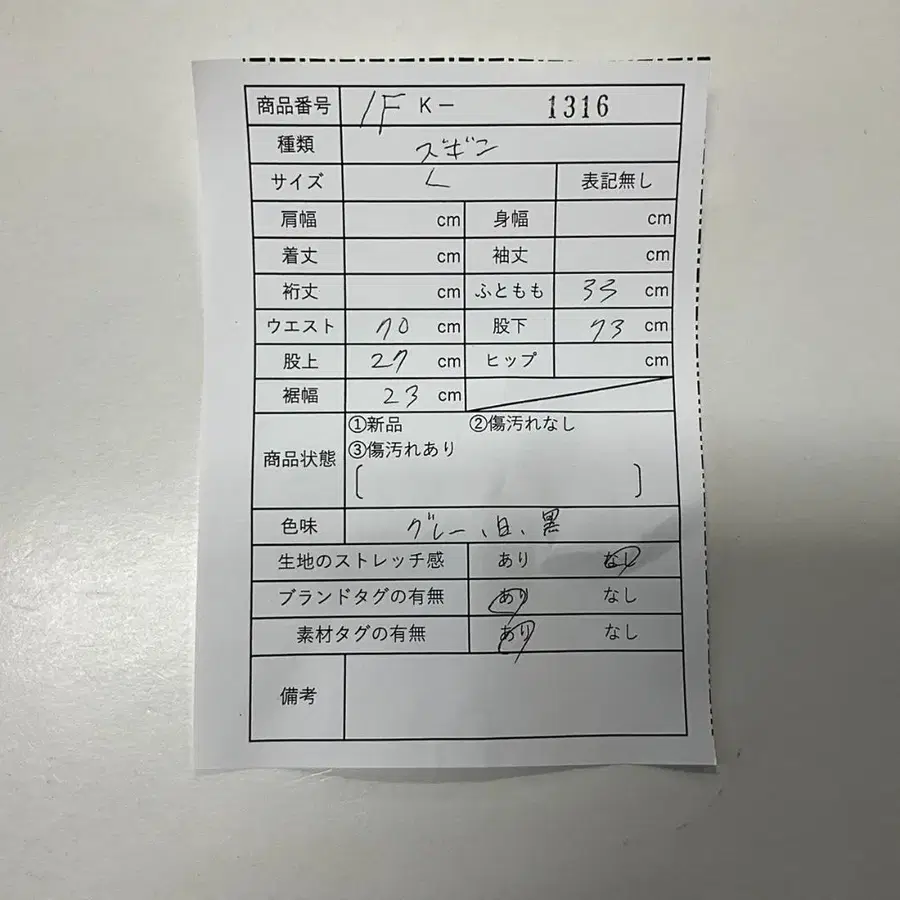 商品番号 1F K- 1316
種類 ズボン
サイズ L 表記無し
肩幅 cm 身幅 cm
着丈 cm 袖丈 cm
裄丈 cm ふともも 33 cm
ウエスト 70 cm 股下 73 cm
股上 27 cm ヒップ cm
裾幅 23 cm
①新品 ②傷汚れなし
商品状態 ③傷汚れあり
[ ]
色味 グレー、白、黒
生地のストレッチ感 あり なし
ブランドタグの有無 あり なし
素材タグの有無 あり なし
備考